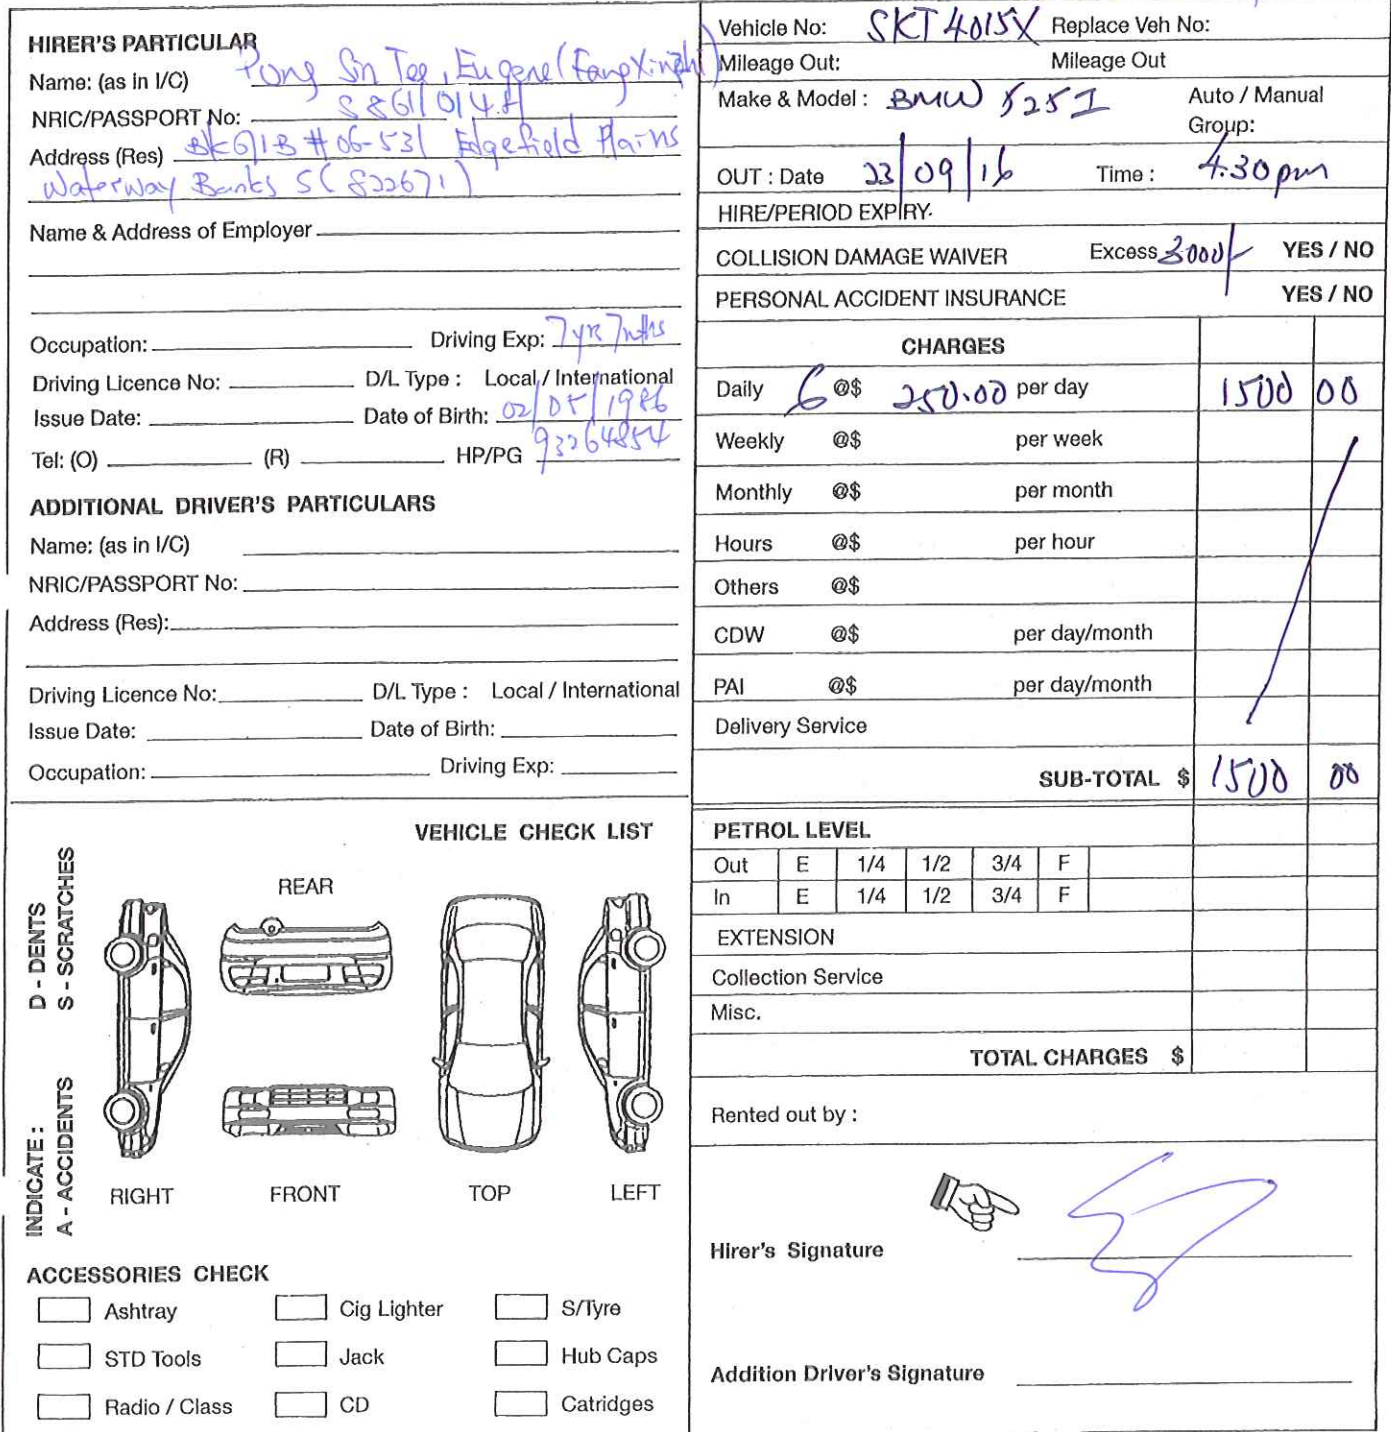 HIRER'S PARTICULAR
Name: (as in I/C) Pong Sin Tee, Eugene (Fang Xinzhi)
NRIC/PASSPORT No:
Address (Res) BK 671B #06-531 Edgefield Plains
Waterway Banks S(822671)
Name & Address of Employer
Occupation: Driving Exp: 7yr 7mths
Driving Licence No: D/L Type : Local / International
Issue Date: Date of Birth: 02/05/1986
Tel: (O) (R) HP/PG 93264854
ADDITIONAL DRIVER'S PARTICULARS
Name: (as in I/C)
NRIC/PASSPORT No:
Address (Res):
Driving Licence No: D/L Type : Local / International
Issue Date: Date of Birth:
Occupation: Driving Exp:
VEHICLE CHECK LIST
INDICATE : D - DENTS
A - ACCIDENTS S - SCRATCHES
REAR
RIGHT FRONT TOP LEFT
ACCESSORIES CHECK
Ashtray Cig Lighter S/Tyre
STD Tools Jack Hub Caps
Radio / Class CD Catridges
Vehicle No: SKT 4015X Replace Veh No:
Mileage Out: Mileage Out
Make & Model : BMW 525I Auto / Manual
Group:
OUT : Date 23/09/16 Time : 4.30pm
HIRE/PERIOD EXPIRY.
COLLISION DAMAGE WAIVER Excess 3000/- YES / NO
PERSONAL ACCIDENT INSURANCE YES / NO
CHARGES
Daily 6 @$ 250.00 per day 1500 00
Weekly @$ per week
Monthly @$ per month
Hours @$ per hour
Others @$
CDW @$ per day/month
PAI @$ per day/month
Delivery Service
SUB-TOTAL $ 1500 00
PETROL LEVEL
Out E 1/4 1/2 3/4 F
In E 1/4 1/2 3/4 F
EXTENSION
Collection Service
Misc.
TOTAL CHARGES $
Rented out by :
Hirer's Signature
Addition Driver's Signature